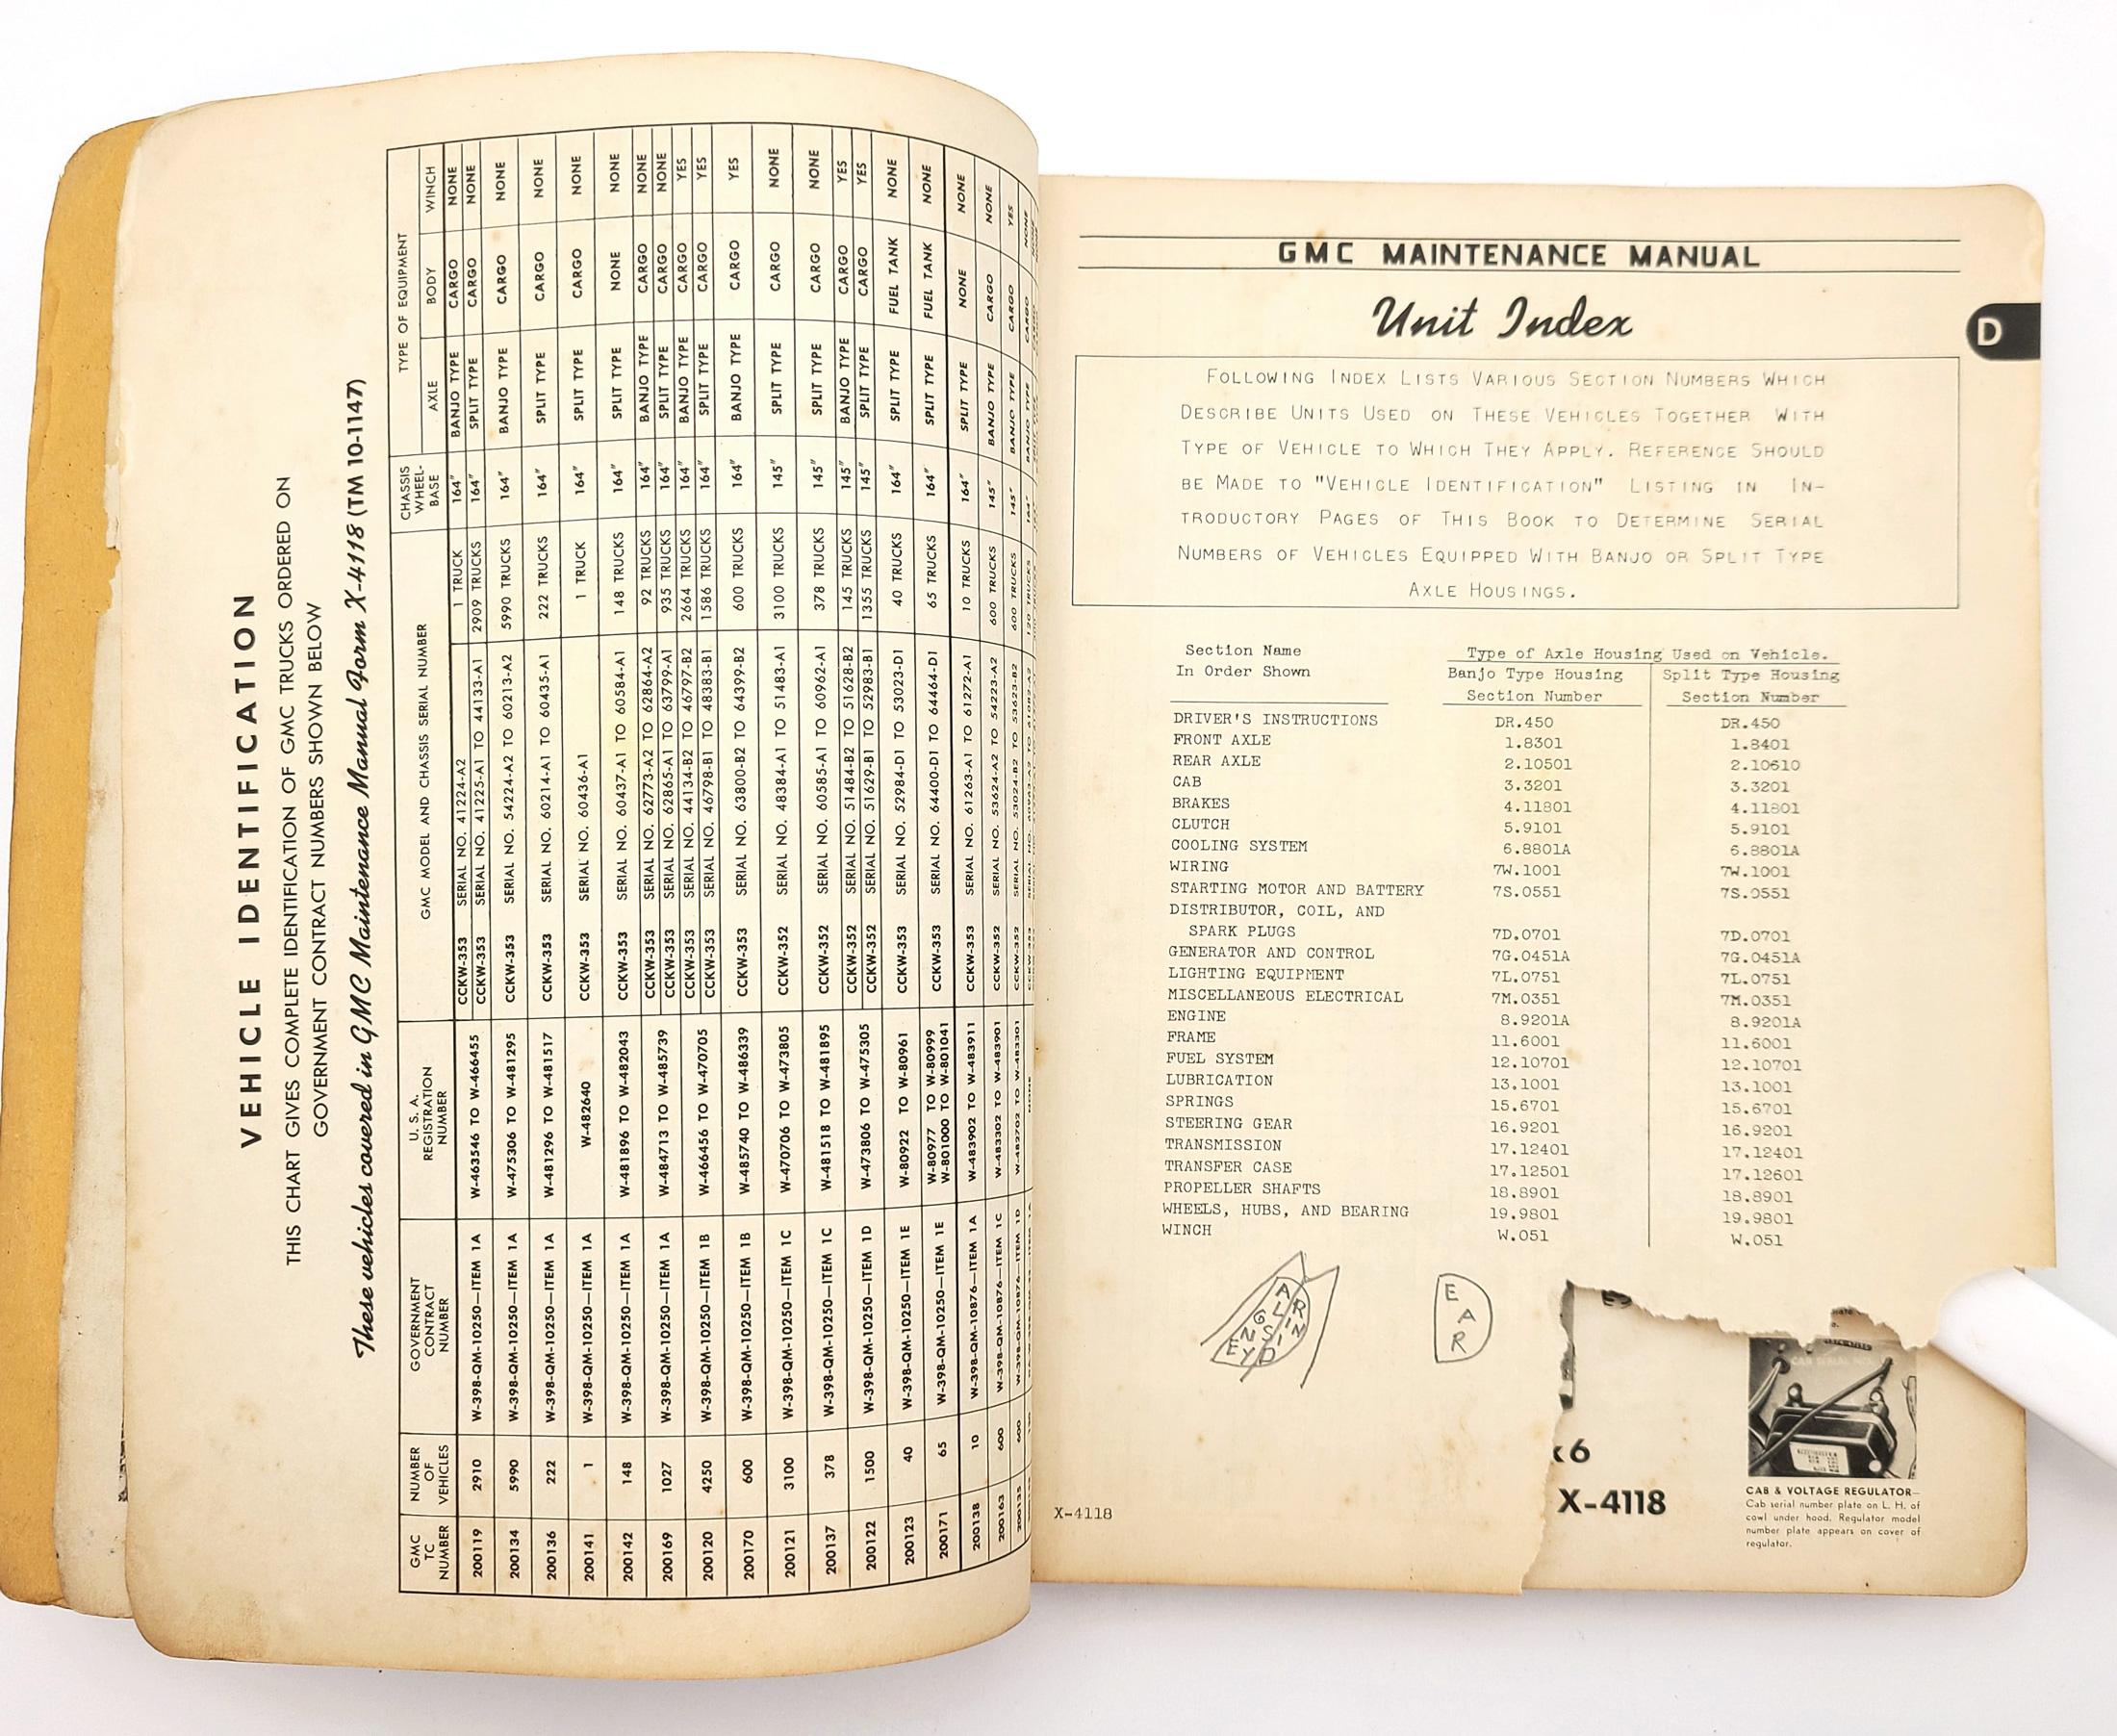 VEHICLE IDENTIFICATION
THIS CHART GIVES COMPLETE IDENTIFICATION OF GMC TRUCKS ORDERED ON
GOVERNMENT CONTRACT NUMBERS SHOWN BELOW
These vehicles covered in GMC Maintenance Manual Form X-4118 (TM 10-1147)
GMC TC NUMBER NUMBER OF VEHICLES GOVERNMENT CONTRACT NUMBER U. S. A. REGISTRATION NUMBER GMC MODEL AND CHASSIS SERIAL NUMBER CHASSIS WHEEL-BASE TYPE OF EQUIPMENT
AXLE BODY WINCH
200119 2910 W-398-QM-10250—ITEM 1A W-463546 TO W-466455 CCKW-353 SERIAL NO. 41224-A2 1 TRUCK 164" BANJO TYPE CARGO NONE
CCKW-353 SERIAL NO. 41225-A1 TO 44133-A1 2909 TRUCKS 164" SPLIT TYPE CARGO NONE
200134 5990 W-398-QM-10250—ITEM 1A W-475306 TO W-481295 CCKW-353 SERIAL NO. 54224-A2 TO 60213-A2 5990 TRUCKS 164" BANJO TYPE CARGO NONE
200136 222 W-398-QM-10250—ITEM 1A W-481296 TO W-481517 CCKW-353 SERIAL NO. 60214-A1 TO 60435-A1 222 TRUCKS 164" SPLIT TYPE CARGO NONE
200141 1 W-398-QM-10250—ITEM 1A W-482640 CCKW-353 SERIAL NO. 60436-A1 1 TRUCK 164" SPLIT TYPE CARGO NONE
200142 148 W-398-QM-10250—ITEM 1A W-481896 TO W-482043 CCKW-353 SERIAL NO. 60437-A1 TO 60584-A1 148 TRUCKS 164" SPLIT TYPE NONE NONE
200169 1027 W-398-QM-10250—ITEM 1A W-484713 TO W-485739 CCKW-353 SERIAL NO. 62773-A2 TO 62864-A2 92 TRUCKS 164" BANJO TYPE CARGO NONE
CCKW-353 SERIAL NO. 62865-A1 TO 63799-A1 935 TRUCKS 164" SPLIT TYPE CARGO NONE
200120 4250 W-398-QM-10250—ITEM 1B W-466456 TO W-470705 CCKW-353 SERIAL NO. 44134-B2 TO 46797-B2 2664 TRUCKS 164" BANJO TYPE CARGO YES
CCKW-353 SERIAL NO. 46798-B1 TO 48383-B1 1586 TRUCKS 164" SPLIT TYPE CARGO YES
200170 600 W-398-QM-10250—ITEM 1B W-485740 TO W-486339 CCKW-353 SERIAL NO. 63800-B2 TO 64399-B2 600 TRUCKS 164" BANJO TYPE CARGO YES
200121 3100 W-398-QM-10250—ITEM 1C W-470706 TO W-473805 CCKW-352 SERIAL NO. 48384-A1 TO 51483-A1 3100 TRUCKS 145" SPLIT TYPE CARGO NONE
200137 378 W-398-QM-10250—ITEM 1C W-481518 TO W-481895 CCKW-352 SERIAL NO. 60585-A1 TO 60962-A1 378 TRUCKS 145" SPLIT TYPE CARGO NONE
200122 1500 W-398-QM-10250—ITEM 1D W-473806 TO W-475305 CCKW-352 SERIAL NO. 51484-B2 TO 51628-B2 145 TRUCKS 145" BANJO TYPE CARGO YES
CCKW-352 SERIAL NO. 51629-B1 TO 52983-B1 1355 TRUCKS 145" SPLIT TYPE CARGO YES
200123 40 W-398-QM-10250—ITEM 1E W-80922 TO W-80961 CCKW-353 SERIAL NO. 52984-D1 TO 53023-D1 40 TRUCKS 164" SPLIT TYPE FUEL TANK NONE
200171 65 W-398-QM-10250—ITEM 1E W-80977 TO W-80999 CCKW-353 SERIAL NO. 64400-D1 TO 64464-D1 65 TRUCKS 164" SPLIT TYPE FUEL TANK NONE
W-801000 TO W-801041
200138 10 W-398-QM-10876—ITEM 1A W-483902 TO W-483911 CCKW-353 SERIAL NO. 61263-A1 TO 61272-A1 10 TRUCKS 164" SPLIT TYPE NONE NONE
200163 600 W-398-QM-10876—ITEM 1C W-483302 TO W-483901 CCKW-352 SERIAL NO. 53624-A2 TO 54223-A2 600 TRUCKS 145" BANJO TYPE CARGO NONE
200135 600 W-398-QM-10876—ITEM 1D W-482702 TO W-483301 CCKW-352 SERIAL NO. 53024-B2 TO 53623-B2 600 TRUCKS 145" BANJO TYPE CARGO YES
GMC MAINTENANCE MANUAL
Unit Index
D
FOLLOWING INDEX LISTS VARIOUS SECTION NUMBERS WHICH
DESCRIBE UNITS USED ON THESE VEHICLES TOGETHER WITH
TYPE OF VEHICLE TO WHICH THEY APPLY. REFERENCE SHOULD
BE MADE TO "VEHICLE IDENTIFICATION" LISTING IN IN-
TRODUCTORY PAGES OF THIS BOOK TO DETERMINE SERIAL
NUMBERS OF VEHICLES EQUIPPED WITH BANJO OR SPLIT TYPE
AXLE HOUSINGS.
Section Name Type of Axle Housing Used on Vehicle.
In Order Shown Banjo Type Housing Split Type Housing
Section Number Section Number
DRIVER'S INSTRUCTIONS DR.450 DR.450
FRONT AXLE 1.8301 1.8401
REAR AXLE 2.10501 2.10610
CAB 3.3201 3.3201
BRAKES 4.11801 4.11801
CLUTCH 5.9101 5.9101
COOLING SYSTEM 6.8801A 6.8801A
WIRING 7W.1001 7W.1001
STARTING MOTOR AND BATTERY 7S.0551 7S.0551
DISTRIBUTOR, COIL, AND
SPARK PLUGS 7D.0701 7D.0701
GENERATOR AND CONTROL 7G.0451A 7G.0451A
LIGHTING EQUIPMENT 7L.0751 7L.0751
MISCELLANEOUS ELECTRICAL 7M.0351 7M.0351
ENGINE 8.9201A 8.9201A
FRAME 11.6001 11.6001
FUEL SYSTEM 12.10701 12.10701
LUBRICATION 13.1001 13.1001
SPRINGS 15.6701 15.6701
STEERING GEAR 16.9201 16.9201
TRANSMISSION 17.12401 17.12401
TRANSFER CASE 17.12501 17.12601
PROPELLER SHAFTS 18.8901 18.8901
WHEELS, HUBS, AND BEARING 19.9801 19.9801
WINCH W.051 W.051
EAR
x6
X-4118
X-4118
CAB & VOLTAGE REGULATOR—
Cab serial number plate on L. H. of
cowl under hood. Regulator model
number plate appears on cover of
regulator.